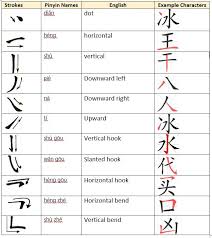 Strokes Pinyin Names English Example Characters
diǎn dot 冰
héng horizontal 王
shù vertical 干
piě Downward left 八
nà Downward right 人
tí Upward 冰
shù gōu Vertical hook 水
wān gōu Slanted hook 代
héng gōu Horizontal hook 买
héng zhé Horizontal bend 口
shù zhé Vertical bend 凶